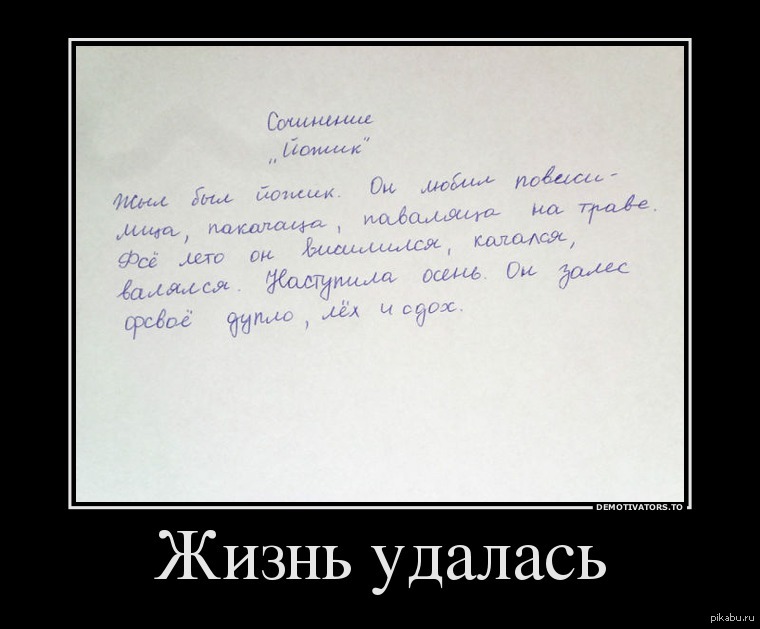 Сочинение
„Йожик"
Жыл был йожик. Он любил повиси-
лица, пакачаца, паваляца на траве.
Фсё лето он висилился, качался,
валялся. Наступила осень. Он залес
фсвоё дупло, лёх и сдох.
DEMOTIVATORS.TO
Жизнь удалась
pikabu.ru